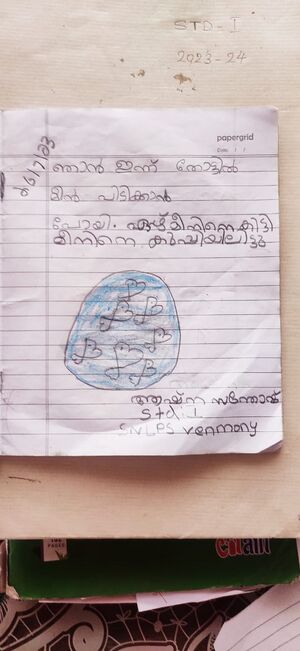 STD - I
2023-24
papergrid
Date: / /
26/7/23
ഞാൻ ഇന്ന് തോട്ടിൽ
മീൻ പിടിക്കാൻ
പോയി. ഏഴ് മീനിനെ കിട്ടി
മീനിനെ കുഴിയിലിട്ടു
ആഷ്ന സന്തോഷ്
Std: I
SNLPS venmony
PAGES